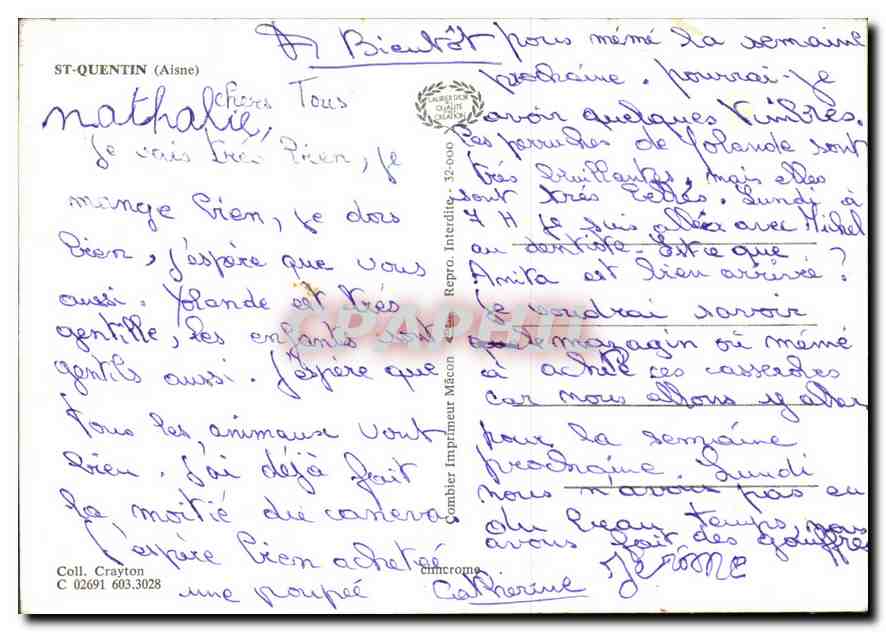 ST-QUENTIN (Aisne)
chers Tous
nathalie,
Je vais très bien, je
mange bien, je dors
bien, j'espère que vous
aussi. Yolande est très
gentille, les enfants sont
gentils aussi. J'espère que
tous les animaux vont
bien. J'ai déjà fait
la moitié du canevas
J'espère bien acheteé
une poupée
Coll. Crayton
C 02691 603.3028
LAURIER D'OR DE LA QUALITÉ CRÉATION
Combier Imprimeur Mâcon Repro. Interdite - 32-000
cimcrome
CPAPHIL
A Bientôt pous mémé la semaine
prochaine. pourrai-je
avoir quelques timbres.
Les perruches de Yolande sont
très bruillantes, mais elles
sont très belles. Lundi à
7 H je suis allée avec Michel
au dentiste. Est ce que
Amita est bien arrivée ?
Je voudrai savoir
le magazin où mémé
à acheté ces casseroles
car nous allons y aller
pour la semaine
prochaine. Lundi
nous n'avoir pas eu
du beau temps, nous
avons fait des gouffres
Catherine Jérôme